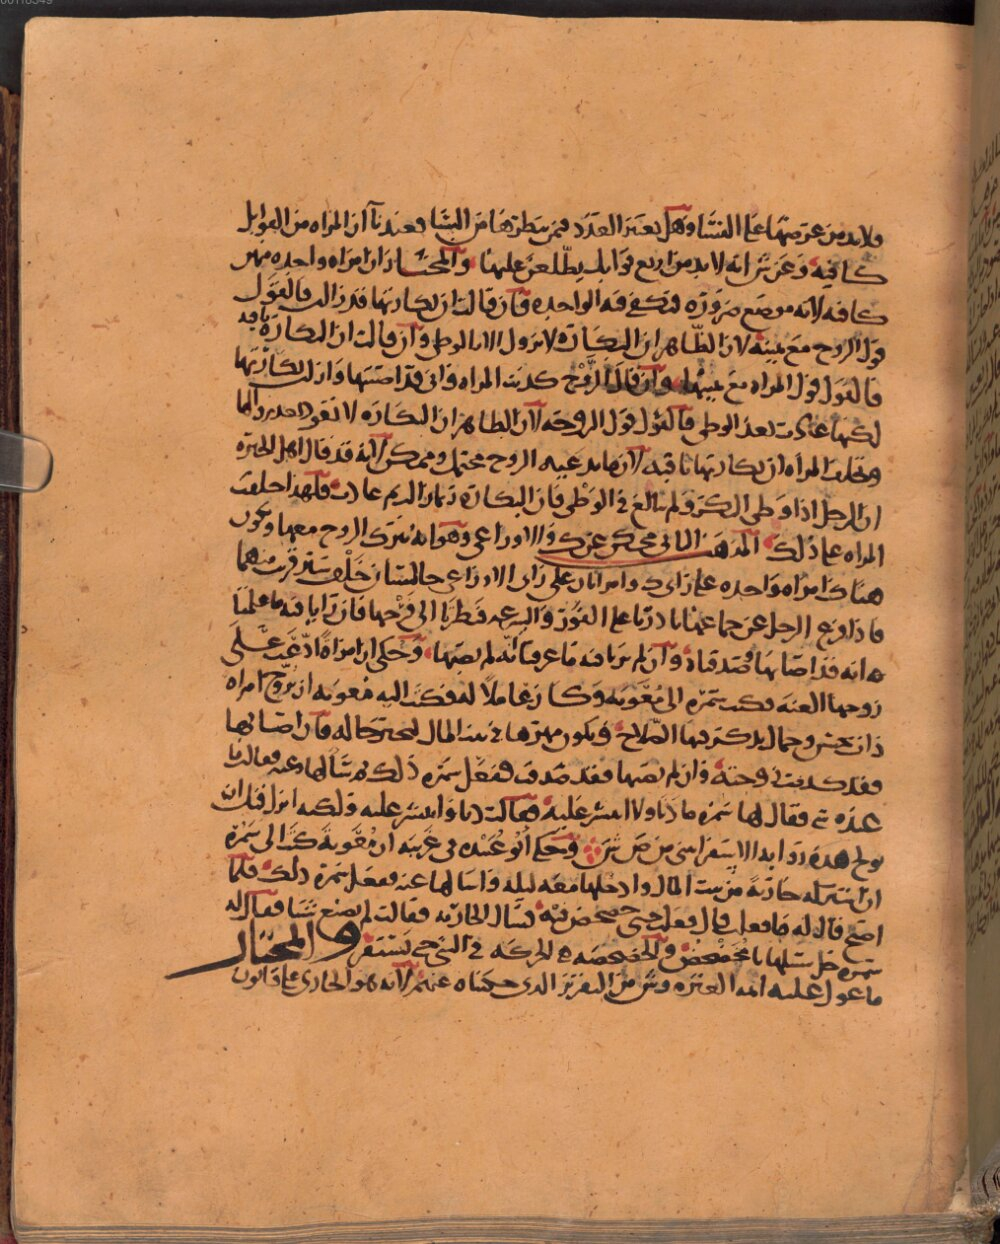 فلا بد من عرضها على النساء وهل يعتبر العدد فمن ينظرها من النسا فعندنا ان المراه من القوابل
كافيه وعن ش انه لا بد من اربع قوابل يطلعن عليها والمختار ان امراه واحده منهن
كافه لانه موضع ضروره فتكفى فيه الواحده فان قالت ان بكارتها قد زالت فالقول
قول الزوج مع يمينه لان الظاهر ان البكارة لا تزول الا بالوطى وان قالت ان البكارة باقيه
فالقول قول المراه مع يمينها وان قال الزوج كذبت المراه وانى قد اصبتها وازلت بكارتها
لكنها عادت بعد الوطى فالقول قول الزوجه لان الظاهر ان البكاره لا تعود بعد زوالها
وتحلف المراه ان بكارتها باقيه لان ما يدعيه الزوج محتمل وممكن لانه قد قال اهل الخبره
ان الرجل اذا وطى البكر ولم يبالغ فى الوطى فان البكارة ربما اليه عادت فلهذا حلفت
المراه على ذلك المذهب الثانى محكى عن ك والاوزاعى وهو انه يترك الزوج معها ويكون
هناك امراه واحده على راى ك وامراتان على راى الاوزاعى جالستان خلف ستر قريب منهما
فاذا فرغ الرجل عن جماعها بادرتا على الفور والسرعه فنظرتا الى فرجها فان رايا فيه ما علمتا
انه قد اصابها فقد صدقا وان لم يريا فيه ما عرفنا انه لم يصبها وحكى ان امراة ادعت على
زوجها العنه فكتب سمرة الى معويه وكان عاملا له فكتب اليه معويه ان يزوج امراه
ذات حسن وجمال يذكر فيها الصلاح ويكون مهرها فى بيت المال لتختبر حاله فان اصابها
فقد كذبت زوجته وان لم يصبها فقد صدقت ففعل سمره ذلك ثم سالها عنه فقالت ما
عنده شى فقال لها سمرة ما دنا ولا انتشر عليه فقالت دنا وانتشر عليه ولكنه انزل قبل ان
يولج هذه روايه الاسفراينى من ص ش وحكى ابو عبيده فى غريبه ان معويه كتب الى سمرة
ان اشتر له جارية من بيت المال وادخلها معه ليله واسالها عنه ففعل سمرة ذلك فلما
اصبح قال له ما فعلت قال فعلت حتى حصحص فيه فسال الجاريه فقالت لم يصنع شيئا فقال له
سمره خل سبيلها يا محصحص والحصحصه هى الحركه فى الشى حتى يستقر والمختار
ما عول عليه ايمه العتره وش من التقرير الذى حكيناه عنهم لانه هو الجارى على قانون